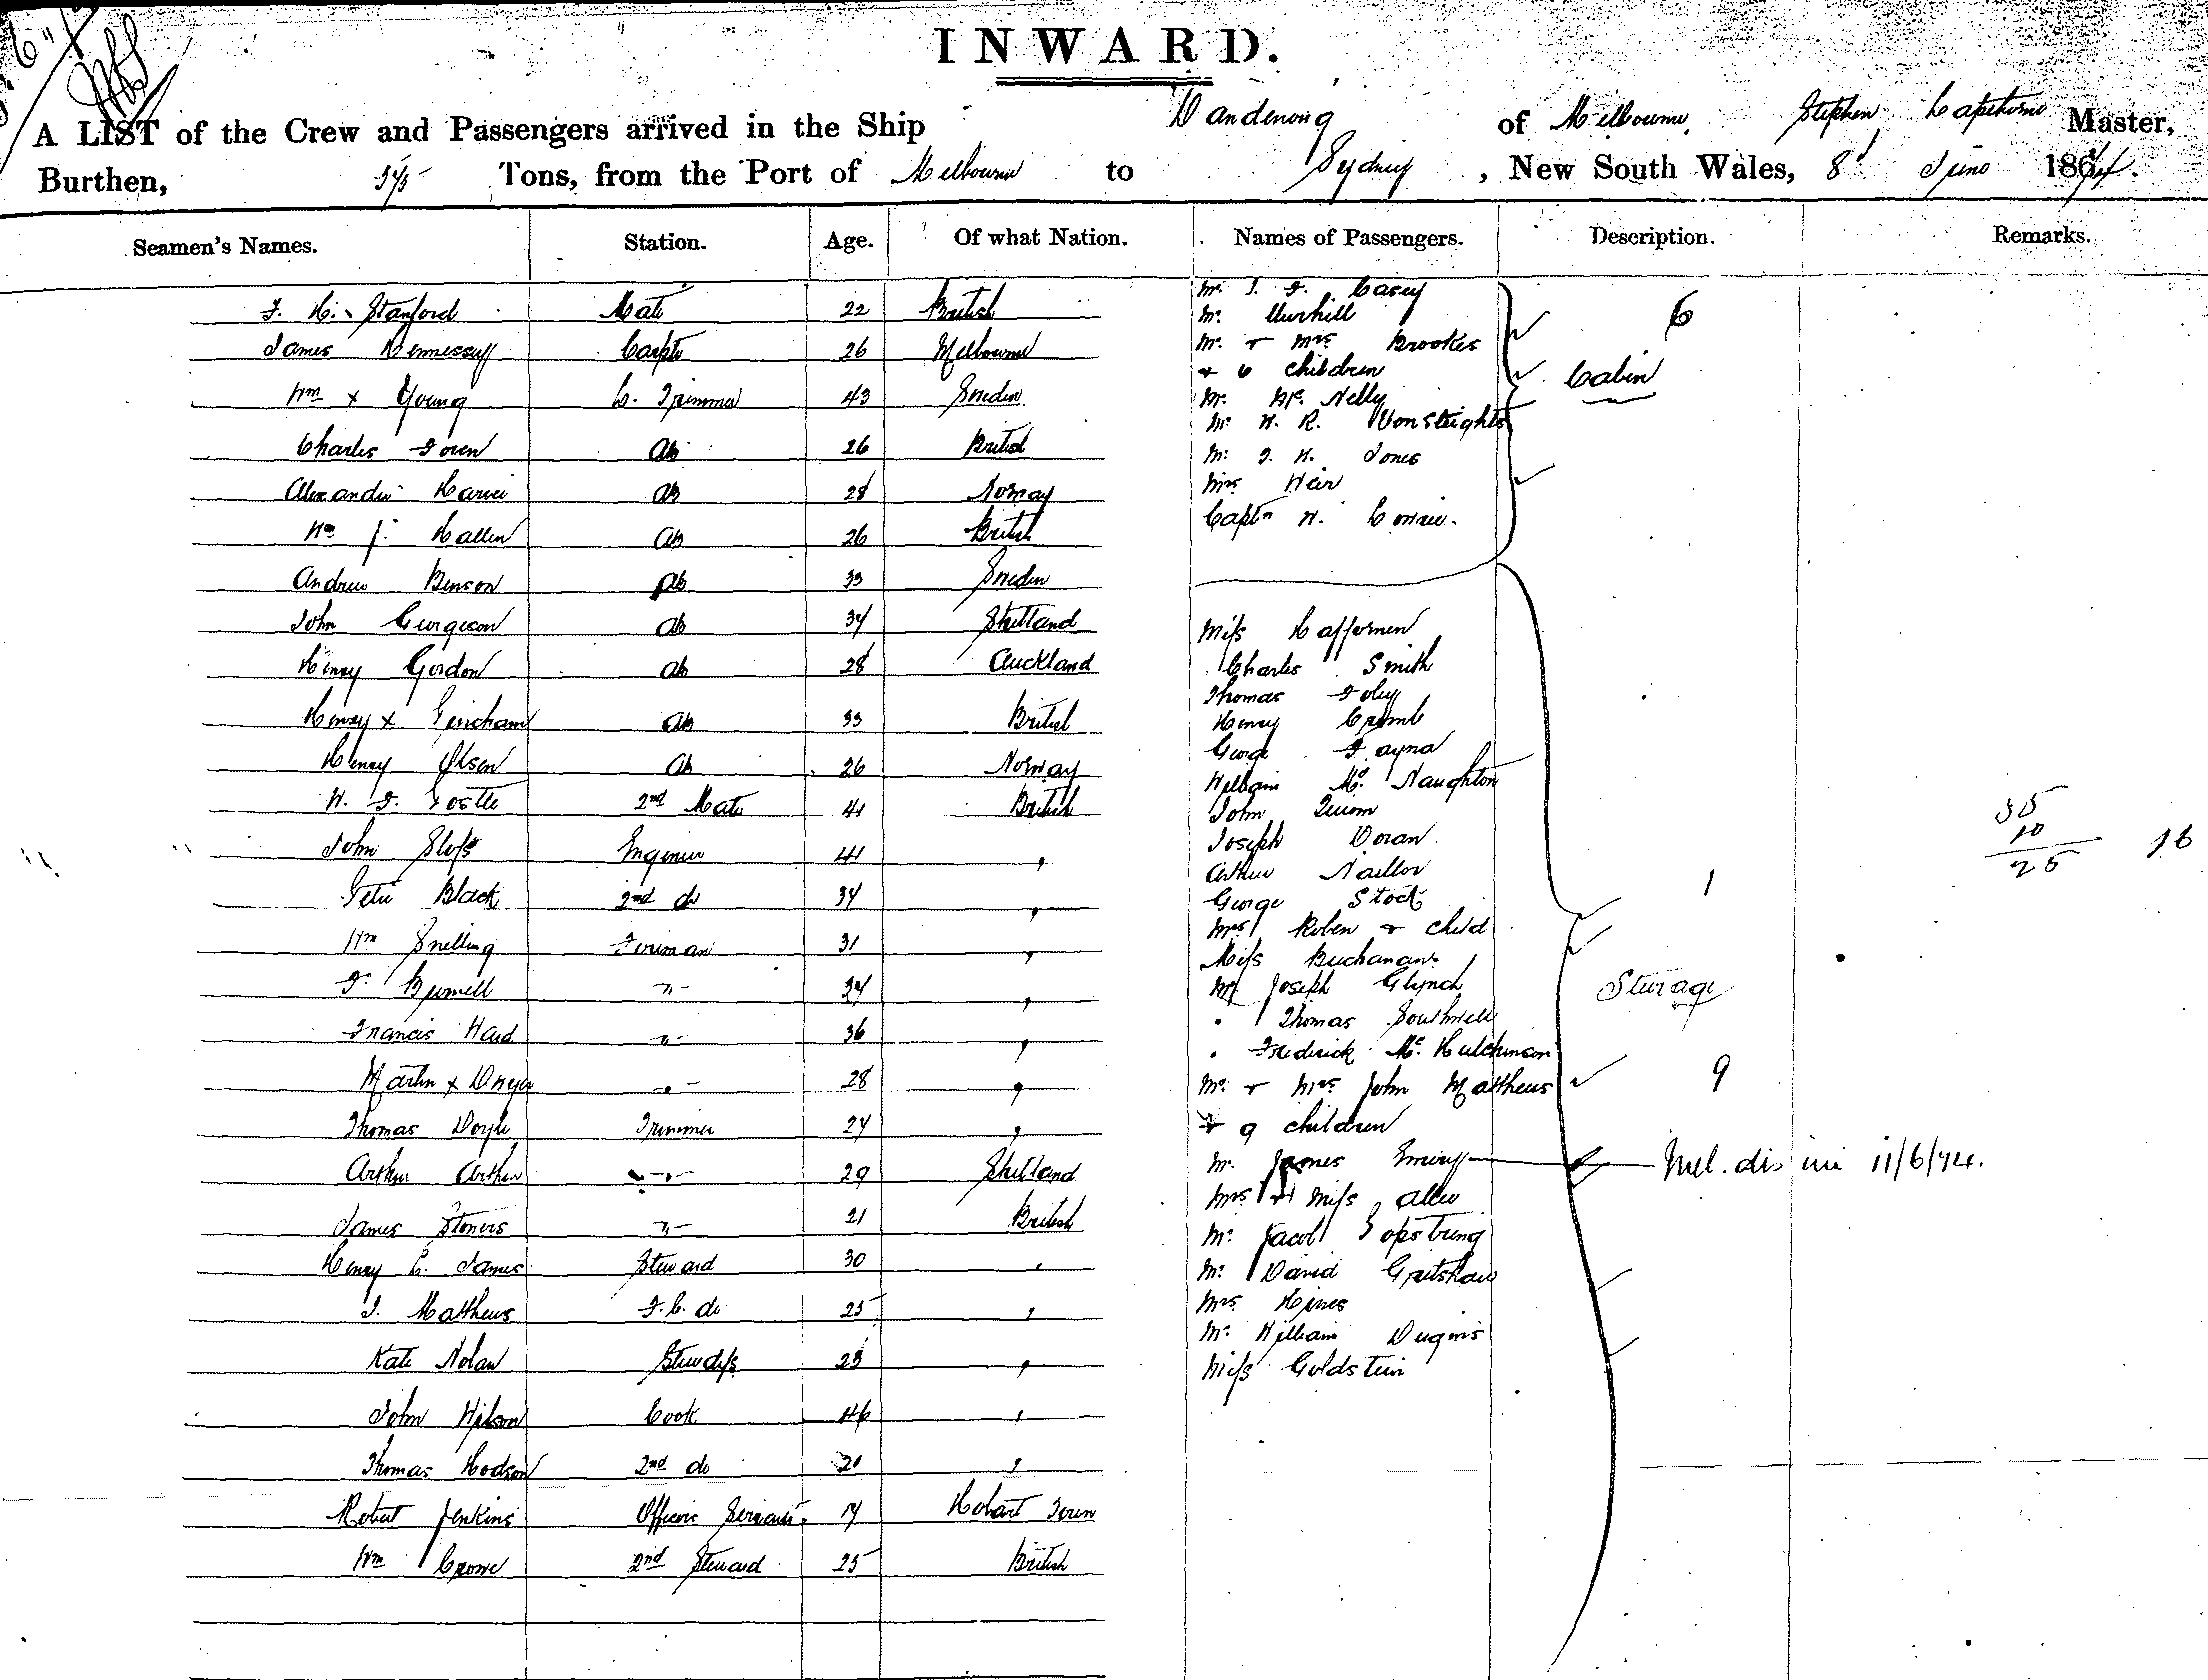 INWARD.
A LIST of the Crew and Passengers arrived in the Ship Dandenong of Melbourne, Stephen Lapthorne Master,
Burthen, Tons, from the Port of Melbourne to Sydney, New South Wales, 8 June 18
Seamen's Names. Station. Age. Of what Nation. Names of Passengers. Description. Remarks.
F. H. Stanford Mate 22 British
James Hennessy Carptr 26 Melbourne
Wm x Young L. Trimmer 43 Sweden
Charles Ab 26 British
Alexander Ab 28 Norway
Wm J. Ab 26 British
Andrew Benson Ab 33 Sweden
John Ab 34 Shetland
Henry Gordon Ab 28 Auckland
Henry x Ab 33 British
Henry Olsen Ab 26 Norway
W. F. 2nd Mate 41 British
John Engineer 41 "
Peter Black 2nd do 34 "
Wm Snelling Fireman 31 "
F. "
Francis Ward " 36 "
Martin x Dwyer " 28 "
Thomas Doyle Trimmer 24 "
Arthur Arthur " 29 Shetland
James " 21 British
Henry L. James Steward 30 "
J. Matthews F.C. do 25 "
Kate Nolan Stewdss "
John Wilson Cook 46 "
Thomas Hodson 2nd do "
Robert Jenkins Officers Servant Hobart Town
Wm Crowe 2nd Steward 25 British
Mr. J. F. Casey
Mr.
Mr. + Mrs Brookes
+ 6 children
Mr. Wm. Nelly
Mr W. R. Vonsteights
Mr. J. W. Jones
Mrs Weir
Captn W.
6
Cabin
Miss Haffernen
Charles Smith
Thomas Foley
Henry Cromb
George Fayna
William Mc Naughton
John
Joseph Doran
Arthur Naillor
George Stock
Mrs Roben + child
Miss Buchanan
Mr Joseph Glynch
" Thomas Southwell
" Frederick Mc. Hutchinson
Mr. + Mrs John Matthews
+ 9 children
Mr. James
Mrs + Miss Allen
Mr. Jacob
Mr. David
Mrs Hines
Mr. William
Miss Goldstein
1
Sturage
9
11/6/74.
35
10
25
16